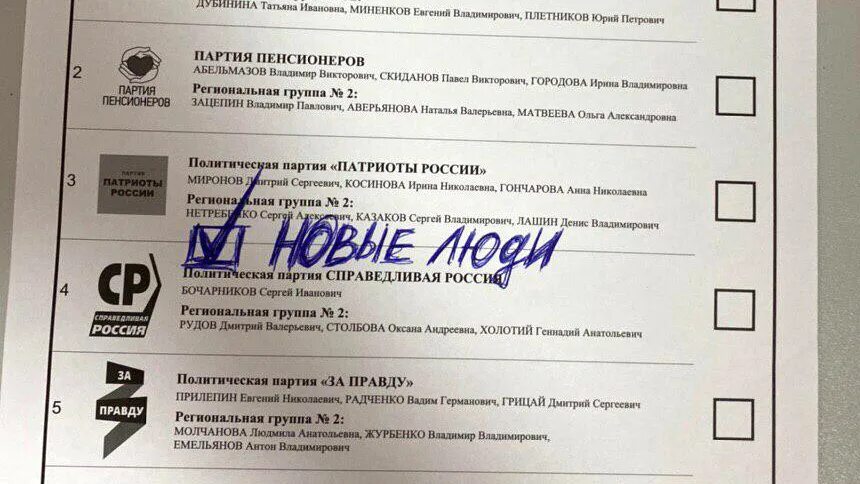 ДУБИНИНА Татьяна Ивановна, МИНЕНКОВ Евгений Владимирович, ПЛЕТНИКОВ Юрий Петрович
2
ПАРТИЯ ПЕНСИОНЕРОВ
ПАРТИЯ ПЕНСИОНЕРОВ
АБЕЛЬМАЗОВ Владимир Викторович, СКИДАНОВ Павел Викторович, ГОРОДОВА Ирина Владимировна
Региональная группа № 2:
ЗАЦЕПИН Владимир Павлович, АВЕРЬЯНОВА Наталья Валерьевна, МАТВЕЕВА Ольга Александровна
3
ПАРТИЯ
ПАТРИОТЫ
РОССИИ
Политическая партия «ПАТРИОТЫ РОССИИ»
МИРОНОВ Дмитрий Сергеевич, КОСИНОВА Ирина Николаевна, ГОНЧАРОВА Анна Николаевна
Региональная группа № 2:
НЕТРЕБЕНКО Сергей Алексеевич, КАЗАКОВ Сергей Владимирович, ЛАШИН Денис Владимирович
НОВЫЕ ЛЮДИ
4
СР
СПРАВЕДЛИВАЯ
РОССИЯ
Политическая партия СПРАВЕДЛИВАЯ РОССИЯ
БОЧАРНИКОВ Сергей Иванович
Региональная группа № 2:
РУДОВ Дмитрий Валерьевич, СТОЛБОВА Оксана Андреевна, ХОЛОТИЙ Геннадий Анатольевич
5
ЗА
ПРАВДУ
Политическая партия «ЗА ПРАВДУ»
ПРИЛЕПИН Евгений Николаевич, РАДЧЕНКО Вадим Германович, ГРИЦАЙ Дмитрий Сергеевич
Региональная группа № 2:
МОЛЧАНОВА Людмила Анатольевна, ЖУРБЕНКО Владимир Владимирович,
ЕМЕЛЬЯНОВ Антон Владимирович